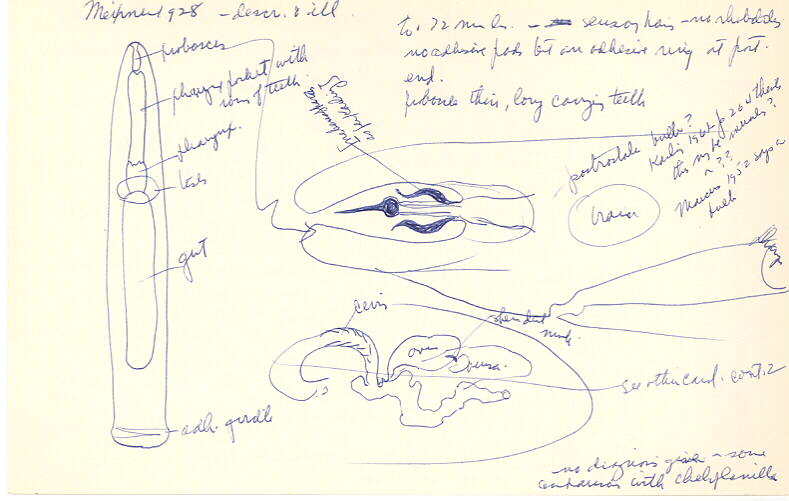 Meixner 1928 – descr. & ill.
to 1.72 m. ls. — sensory hairs – no rhabdoids
no adhesive pads but an adhesive ring at post.
end.
proboscis thin, long carrying teeth
proboscis
pharynx pocket with
rows of teeth.
pharynx.
testes
gut
adh. girdle
postrostale bulb?
Karling 1961 p 204 thinks
this may be muscle?
or ??
Marcus 1952 says a
bulb
brain
cirrus
ov
bursa.
see other card. cont. 2
no diagnosis given – some
confusion with cheliplanilla